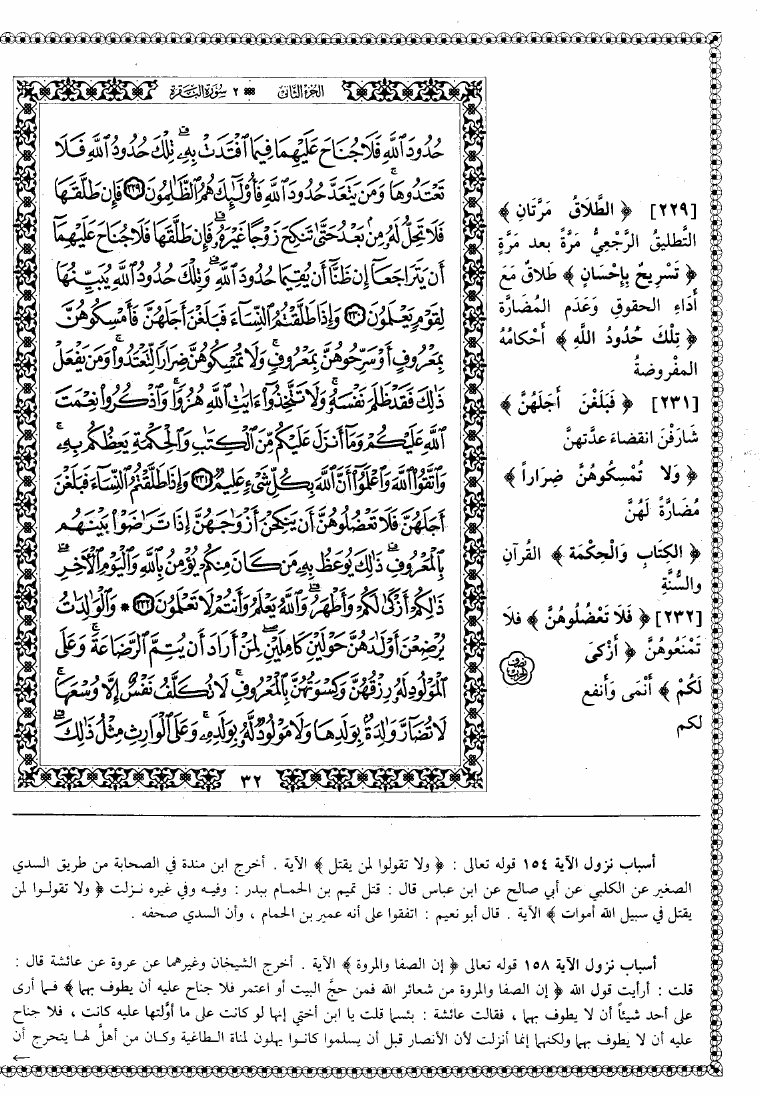 الجزء الثاني ٢ سورة البقرة
حُدُودَ ٱللَّهِ فَلَا جُنَاحَ عَلَيْهِمَا فِيمَا ٱفْتَدَتْ بِهِۦۗ تِلْكَ حُدُودُ ٱللَّهِ فَلَا
تَعْتَدُوهَاۚ وَمَن يَتَعَدَّ حُدُودَ ٱللَّهِ فَأُو۟لَـٰٓئِكَ هُمُ ٱلظَّـٰلِمُونَ ٢٢٩ فَإِن طَلَّقَهَا
فَلَا تَحِلُّ لَهُۥ مِنۢ بَعْدُ حَتَّىٰ تَنكِحَ زَوْجًا غَيْرَهُۥۗ فَإِن طَلَّقَهَا فَلَا جُنَاحَ عَلَيْهِمَآ
أَن يَتَرَاجَعَآ إِن ظَنَّآ أَن يُقِيمَا حُدُودَ ٱللَّهِۗ وَتِلْكَ حُدُودُ ٱللَّهِ يُبَيِّنُهَا
لِقَوْمٍ يَعْلَمُونَ ٢٣٠ وَإِذَا طَلَّقْتُمُ ٱلنِّسَآءَ فَبَلَغْنَ أَجَلَهُنَّ فَأَمْسِكُوهُنَّ
بِمَعْرُوفٍ أَوْ سَرِّحُوهُنَّ بِمَعْرُوفٍۚ وَلَا تُمْسِكُوهُنَّ ضِرَارًا لِّتَعْتَدُوا۟ۚ وَمَن يَفْعَلْ
ذَٰلِكَ فَقَدْ ظَلَمَ نَفْسَهُۥۚ وَلَا تَتَّخِذُوٓا۟ ءَايَـٰتِ ٱللَّهِ هُزُوًاۚ وَٱذْكُرُوا۟ نِعْمَتَ
ٱللَّهِ عَلَيْكُمْ وَمَآ أَنزَلَ عَلَيْكُم مِّنَ ٱلْكِتَـٰبِ وَٱلْحِكْمَةِ يَعِظُكُم بِهِۦۚ
وَٱتَّقُوا۟ ٱللَّهَ وَٱعْلَمُوٓا۟ أَنَّ ٱللَّهَ بِكُلِّ شَىْءٍ عَلِيمٌ ٢٣١ وَإِذَا طَلَّقْتُمُ ٱلنِّسَآءَ فَبَلَغْنَ
أَجَلَهُنَّ فَلَا تَعْضُلُوهُنَّ أَن يَنكِحْنَ أَزْوَٰجَهُنَّ إِذَا تَرَٰضَوْا۟ بَيْنَهُم
بِٱلْمَعْرُوفِۗ ذَٰلِكَ يُوعَظُ بِهِۦ مَن كَانَ مِنكُمْ يُؤْمِنُ بِٱللَّهِ وَٱلْيَوْمِ ٱلْـَٔاخِرِۗ
ذَٰلِكُمْ أَزْكَىٰ لَكُمْ وَأَطْهَرُۗ وَٱللَّهُ يَعْلَمُ وَأَنتُمْ لَا تَعْلَمُونَ ٢٣٢ * وَٱلْوَٰلِدَٰتُ
يُرْضِعْنَ أَوْلَـٰدَهُنَّ حَوْلَيْنِ كَامِلَيْنِۖ لِمَنْ أَرَادَ أَن يُتِمَّ ٱلرَّضَاعَةَۚ وَعَلَى
ٱلْمَوْلُودِ لَهُۥ رِزْقُهُنَّ وَكِسْوَتُهُنَّ بِٱلْمَعْرُوفِۚ لَا تُكَلَّفُ نَفْسٌ إِلَّا وُسْعَهَاۚ
لَا تُضَآرَّ وَٰلِدَةٌۢ بِوَلَدِهَا وَلَا مَوْلُودٌ لَّهُۥ بِوَلَدِهِۦۚ وَعَلَى ٱلْوَارِثِ مِثْلُ ذَٰلِكَۗ
٣٢
[٢٢٩] ﴿ الطَّلاقُ مَرَّتَانِ ﴾
التَّطليقُ الرَّجْعيُّ مَرَّةً بعد مَرَّةٍ
﴿ تَسْرِيحٌ بِإِحْسَانٍ ﴾ طَلاقٌ مَعَ
أَدَاءِ الحقوقِ وَعَدَمِ المُضَارَّة
﴿ تِلْكَ حُدُودُ اللَّهِ ﴾ أَحْكامُهُ
المفْروضةُ
[٢٣١] ﴿ فَبَلَغْنَ أَجَلَهُنَّ ﴾
شَارَفْنَ انقضاءَ عدَّتهنَّ
﴿ وَلا تُمْسِكُوهُنَّ ضِراراً ﴾
مُضَارَّةً لَهُنَّ
﴿ الكِتَابِ وَالْحِكْمَة ﴾ القُرآنِ
والسُّنَّةِ
[٢٣٢] ﴿ فَلَا تَعْضُلُوهُنَّ ﴾ فلا
تَمْنَعُوهُنَّ ﴿ أَزْكَى
لَكُمْ ﴾ أَنْمَى وَأنفع
لكم
أسباب نزول الآية ١٥٤ قوله تعالى : ﴿ ولا تقولوا لمن يقتل ﴾ الآية . أخرج ابن مندة في الصحابة من طريق السدي
الصغير عن الكلبي عن أبي صالح عن ابن عباس قال : قتل تميم بن الحمام ببدر : وفيه وفي غيره نزلت ﴿ ولا تقولوا لمن
يقتل في سبيل الله أموات ﴾ الآية . قال أبو نعيم : اتفقوا على أنه عمير بن الحمام ، وأن السدي صحفه .
أسباب نزول الآية ١٥٨ قوله تعالى ﴿ إن الصفا والمروة ﴾ الآية . أخرج الشيخان وغيرهما عن عروة عن عائشة قال :
قلت : أرأيت قول الله ﴿ إن الصفا والمروة من شعائر الله فمن حجَّ البيت أو اعتمر فلا جناح عليه أن يطوف بهما ﴾ فما أرى
على أحد شيئاً أن لا يطوف بهما ، فقالت عائشة : بئسما قلت يا ابن أختي إنها لو كانت على ما أوَّلتها عليه كانت ، فلا جناح
عليه أن لا يطوف بهما ولكنها إنما أنزلت لأن الأنصار قبل أن يسلموا كانوا يهلون لمناة الطاغية وكان من أهلَّ لها يتحرج أن
←